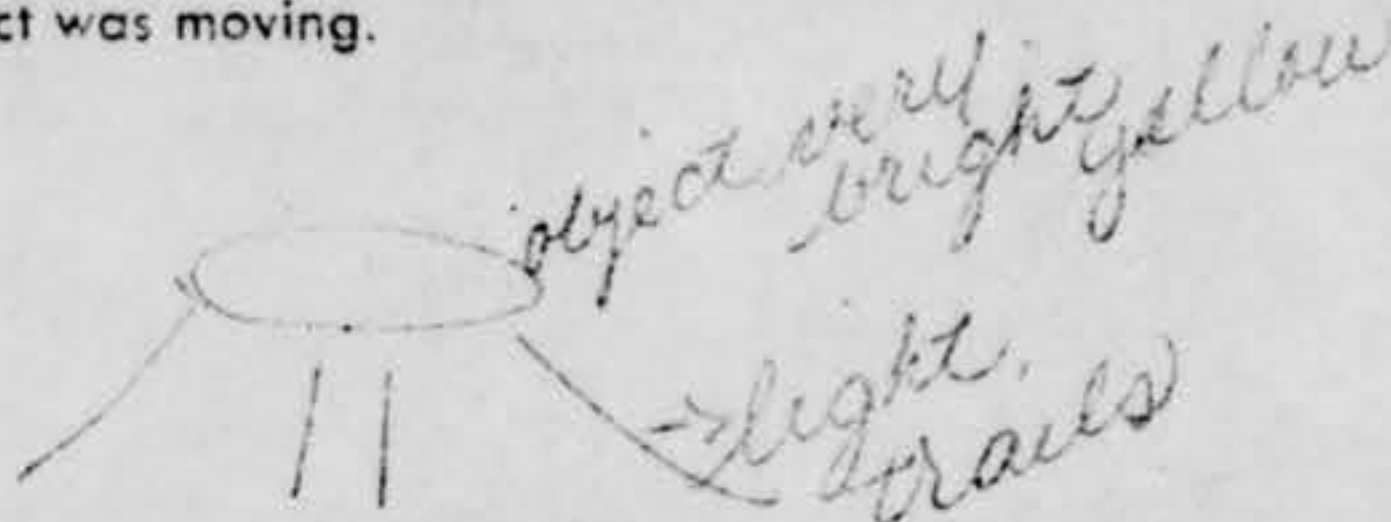 ct was moving.
object very
bright yellow
light
trails